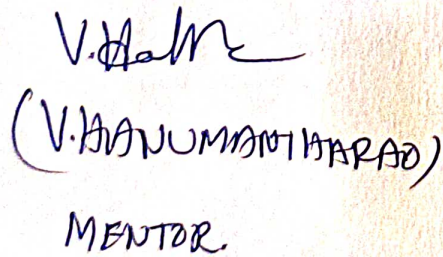 V.
(V.HANUMANTHARAO)
MENTOR.